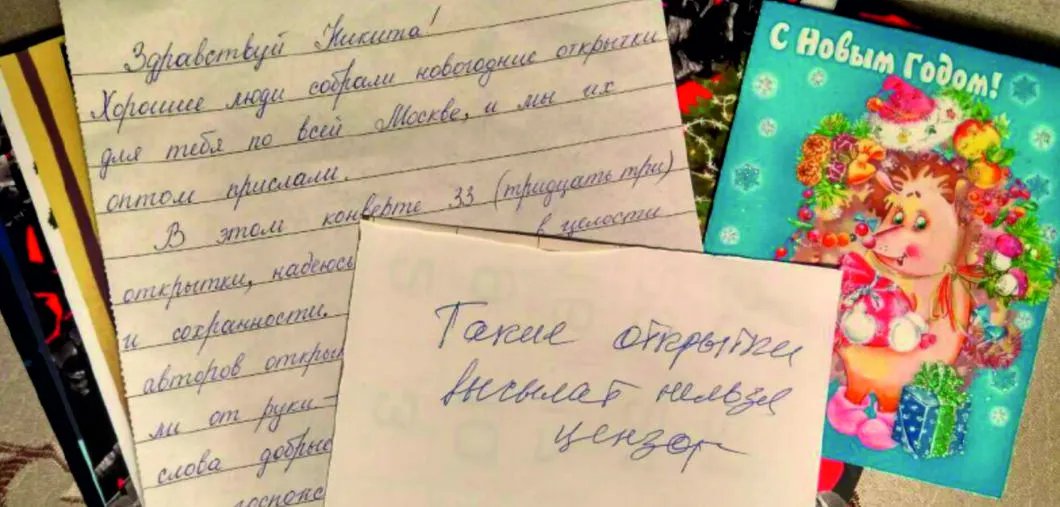 Здравствуй Никита!
Хорошие люди собрали новогодние открытки
для тебя по всей Москве, и мы их
оптом прислали.
В этом конверте 33 (тридцать три)
открытки, надеюсь в целости
и сохранности.
авторов откры
ми от руки –
слова добрые
Такие открытки
высылат нельзя
цензор
С Новым Годом!